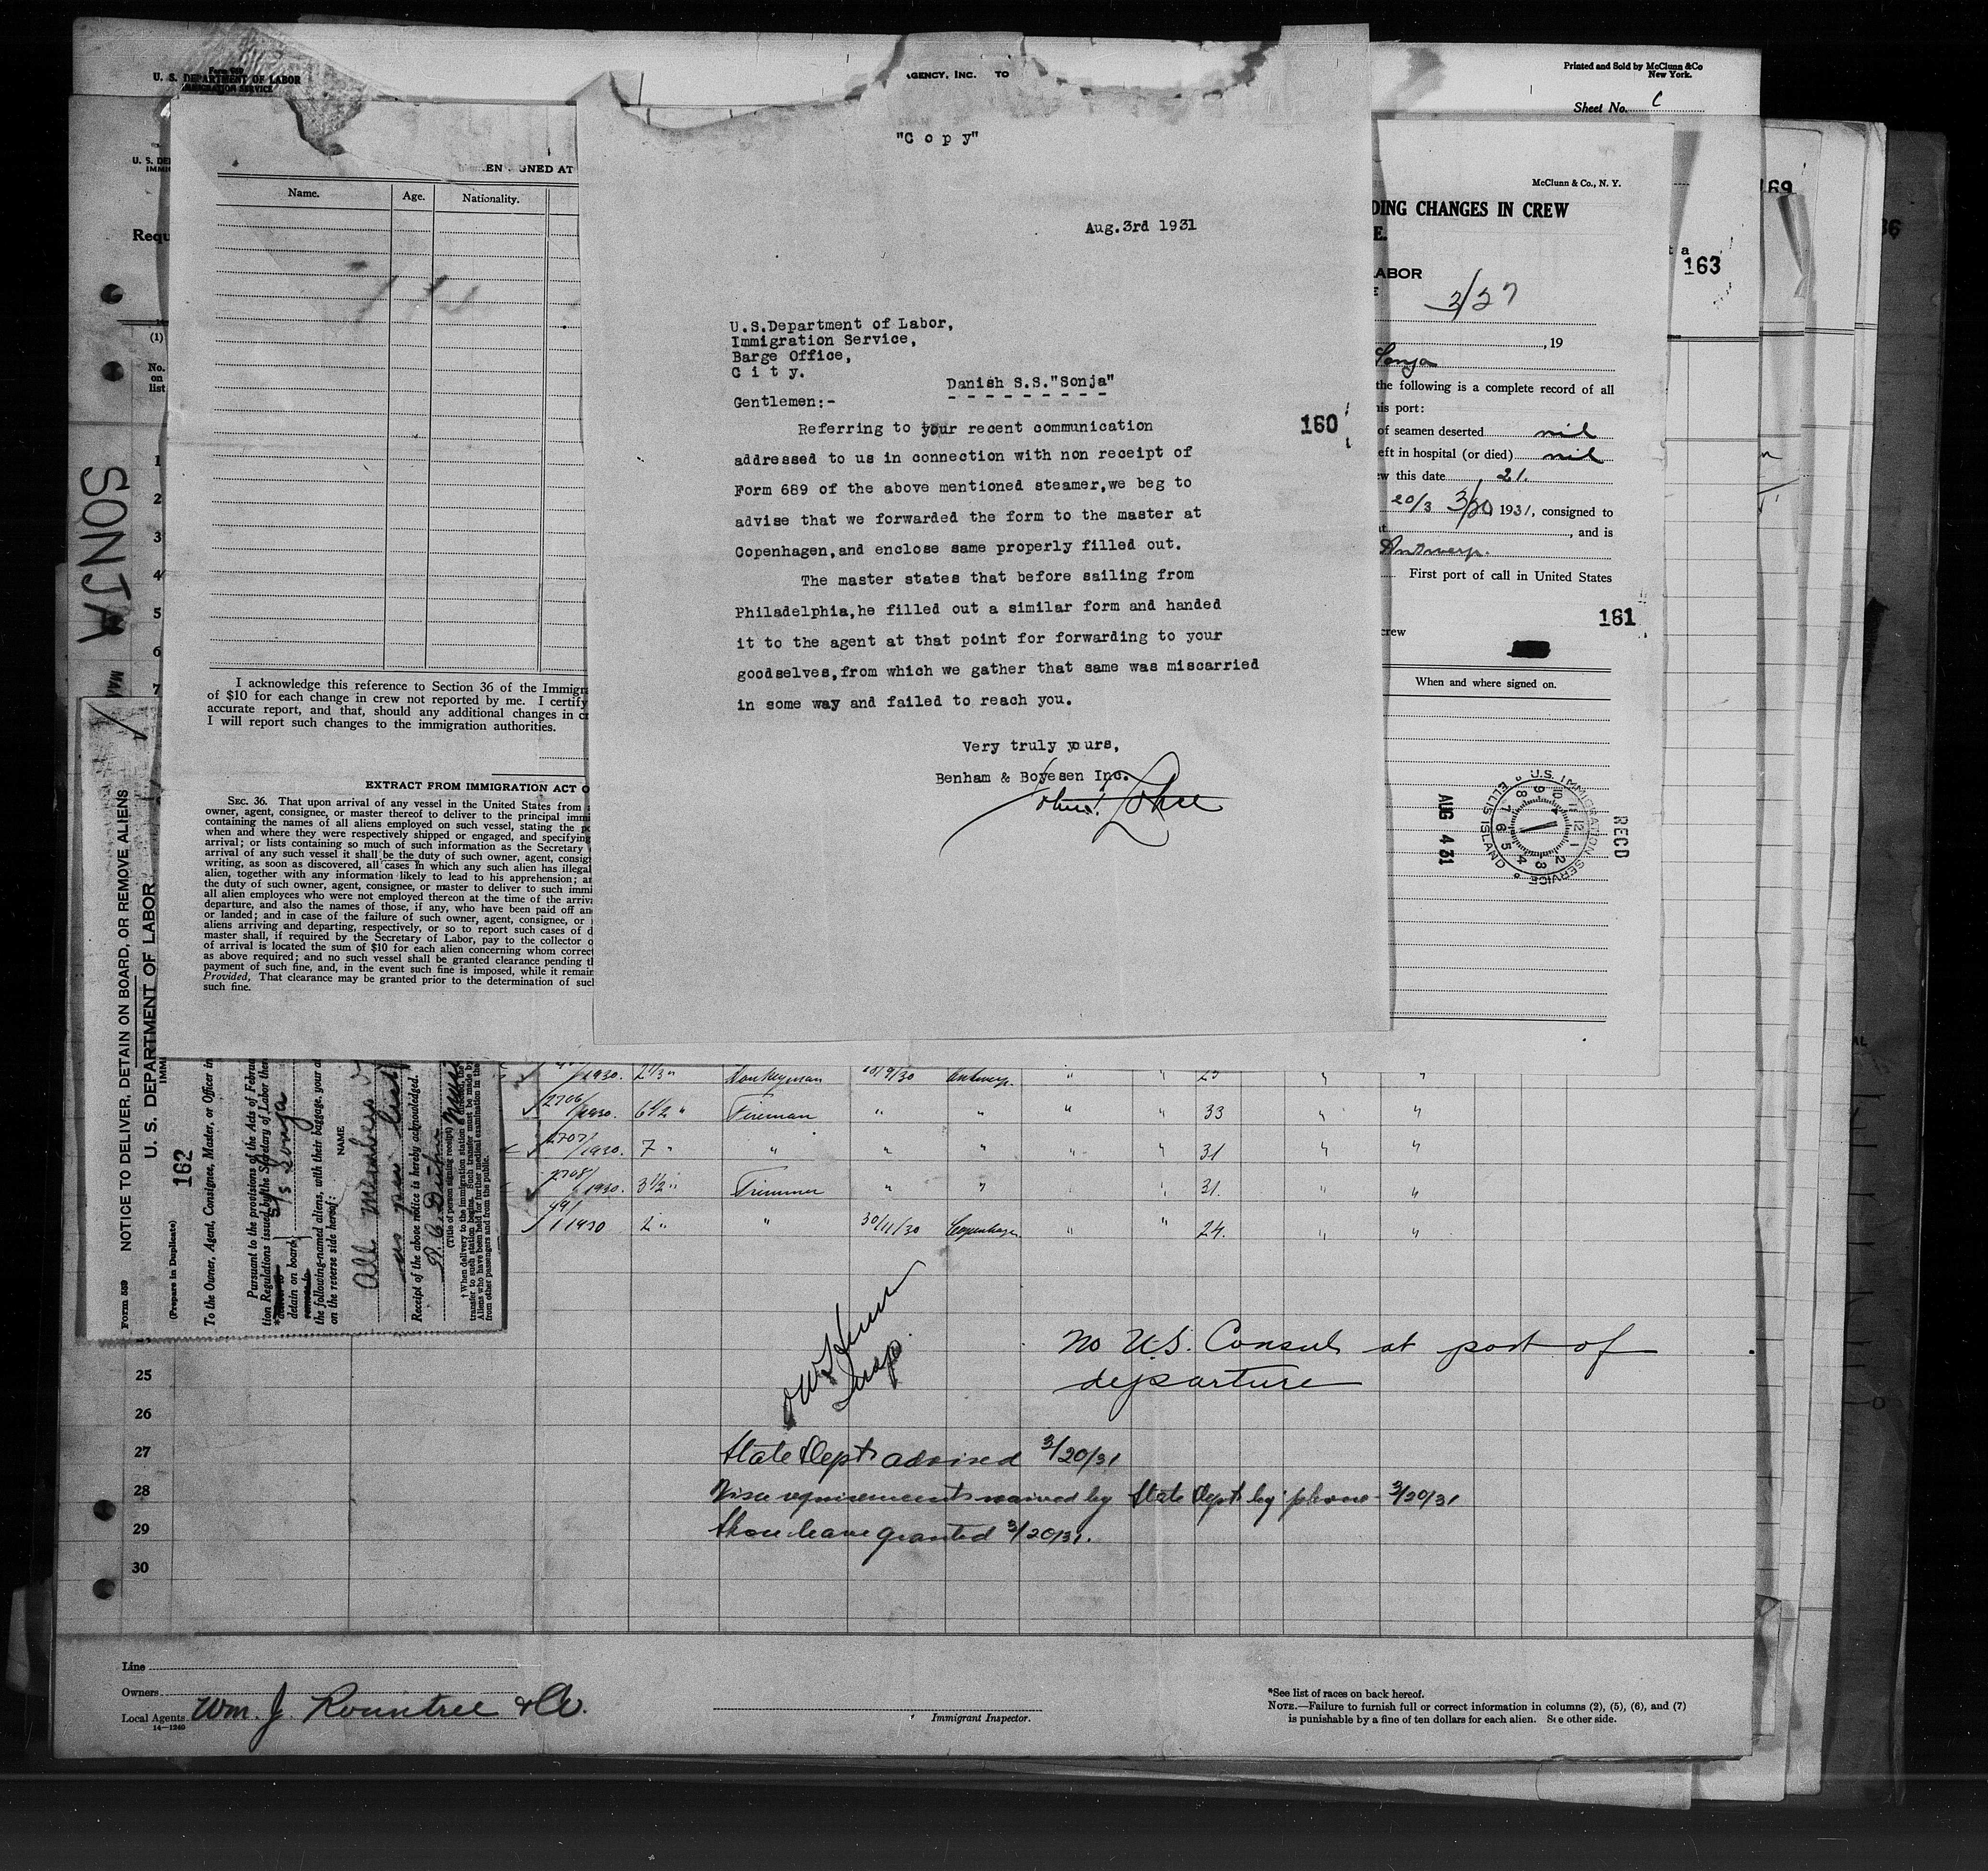 U. S. DEPARTMENT OF LABOR
IMMIGRATION SERVICE
AGENCY, INC. TO
Printed and Sold by McClunn &Co
New York.
Sheet No. C
"C o p y"
Aug.3rd 1931
U.S.Department of Labor,
Immigration Service,
Barge Office,
C i t y.
Danish S.S."Sonja"
Gentlemen:-
160
Referring to your recent communication
addressed to us in connection with non receipt of
Form 689 of the above mentioned steamer,we beg to
advise that we forwarded the form to the master at
Copenhagen,and enclose same properly filled out.
The master states that before sailing from
Philadelphia,he filled out a similar form and handed
it to the agent at that point for forwarding to your
goodselves,from which we gather that same was miscarried
in some way and failed to reach you.
Very truly yours,
Benham & Boyesen Inc.
ENGNED AT
Name. Age. Nationality.
I acknowledge this reference to Section 36 of the Immigr
of $10 for each change in crew not reported by me. I certify
accurate report, and that, should any additional changes in cr
I will report such changes to the immigration authorities.
EXTRACT FROM IMMIGRATION ACT O
SEC. 36. That upon arrival of any vessel in the United States from
owner, agent, consignee, or master thereof to deliver to the principal immi
containing the names of all aliens employed on such vessel, stating the po
when and where they were respectively shipped or engaged, and specifying
arrival; or lists containing so much of such information as the Secretary
arrival of any such vessel it shall be the duty of such owner, agent, consig
writing, as soon as discovered, all cases in which any such alien has illegal
alien, together with any information likely to lead to his apprehension; an
the duty of such owner, agent, consignee, or master to deliver to such immi
all alien employees who were not employed thereon at the time of the arriva
departure, and also the names of those, if any, who have been paid off an
or landed; and in case of the failure of such owner, agent, consignee, or
aliens arriving and departing, respectively, or so to report such cases of d
master shall, if required by the Secretary of Labor, pay to the collector o
of arrival is located the sum of $10 for each alien concerning whom correct
as above required; and no such vessel shall be granted clearance pending t
payment of such fine, and, in the event such fine is imposed, while it remain
Provided, That clearance may be granted prior to the determination of such
such fine.
McClunn & Co., N. Y.
DING CHANGES IN CREW
E.
LABOR
3/27
, 19
Sonja
the following is a complete record of all
his port:
of seamen deserted nil
eft in hospital (or died) nil
ew this date 21.
20/3 3/20 1931, consigned to
, and is
Antwerp.
First port of call in United States
161
crew
When and where signed on.
RECD
U.S. IMMIGRATION SERVICE
ELLIS ISLAND
AUG 4 31
163
169
U. S. DE
IMMI
Requ
(1)
No.
on
list
1
2
3
4
5
6
7
SONJA
Form 539
NOTICE TO DELIVER, DETAIN ON BOARD, OR REMOVE ALIENS
U. S. DEPARTMENT OF LABOR
162
(Prepare in Duplicate)
To the Owner, Agent, Consignee, Master, or Officer in
Pursuant to the provisions of the Acts of Februa
tion Regulations issued by the Secretary of Labor ther
S/S Sonja
detain on board
the following-named aliens, with their baggage, your a
on the reverse side hereof:
NAME
All members
as per list
Receipt of the above notice is hereby acknowledged.
(Title of person signing receipt)
† When delivery to the immigration station
transfer to such station begins. Such transfer must be made by
Aliens who have been held for further medical examination in the
from other passengers and from the public.
1930. Donkeyman 18/9/30 Antwerp " "
2706/1930. 6 1/2 " Fireman " " " " 33 " "
2707/1930. 7 " " " " " 31 " "
2708/1930. 3 1/2 " Trimmer " " " " 31. " "
1930 2 " " 30/11/30 Copenhagen " " 24. " "
Insp
No U.S. Consul at port of
departure
State Dept advised 3/20/31
Visa requirements waived by State Dept by phone 3/20/31
Shore leave granted 3/20/31.
25
26
27
28
29
30
Line
Owners
Local Agents Wm. J. Rountree & Co.
14—1240
Immigrant Inspector.
*See list of races on back hereof.
NOTE.—Failure to furnish full or correct information in columns (2), (5), (6), and (7)
is punishable by a fine of ten dollars for each alien. See other side.